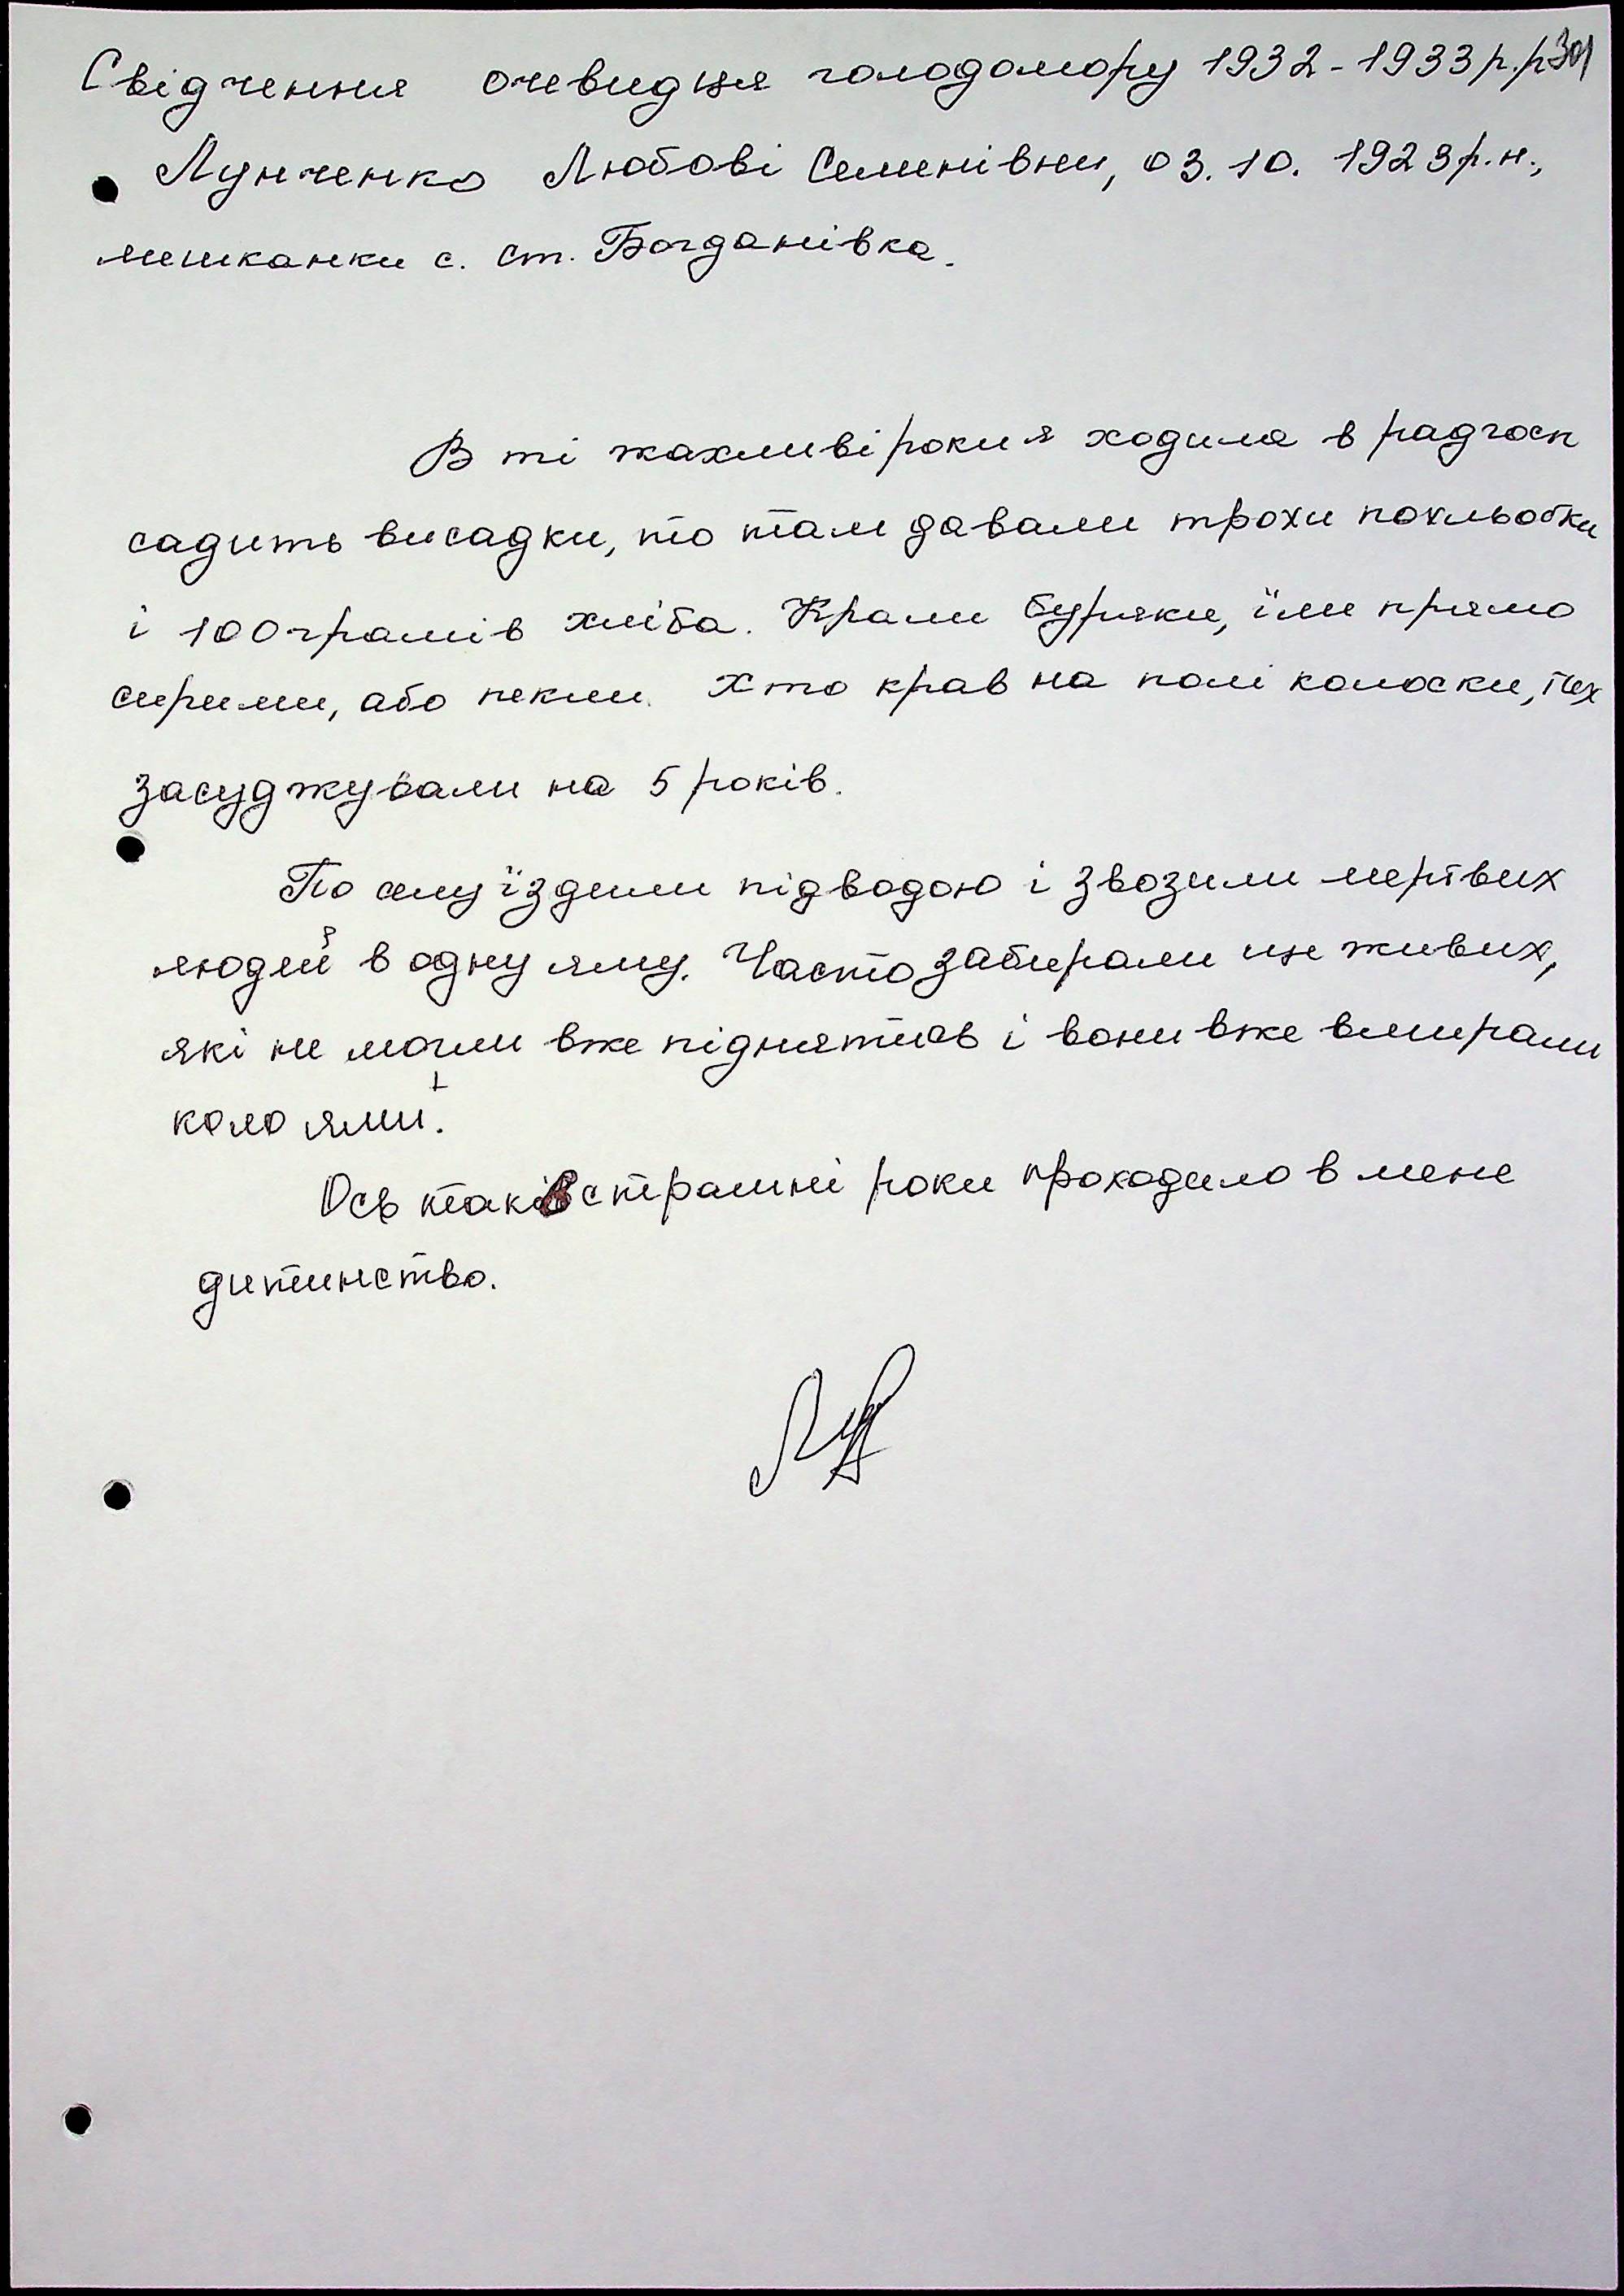 Свідчення очевидця голодомору 1932-1933 р.р
Лунченко Любові Семенівни, 03.10.1923 р.н.,
мешканки с. Ст. Богданівка.
В ті жахливі роки я ходила в радгосп
садить висадки, то там давали трохи похльобки
і 100 грамів хліба. Крали буряки, їли прямо
сирими, або пекли. Хто крав на полі колоски, тих
засуджували на 5 років.
По селу їздили підводою і звозили мертвих
людей в одну яму. Часто забирали ще живих,
які не могли вже піднятись і вони вже вмирали
коло ями.
Ось такі страшні роки проходило в мене
дитинство.